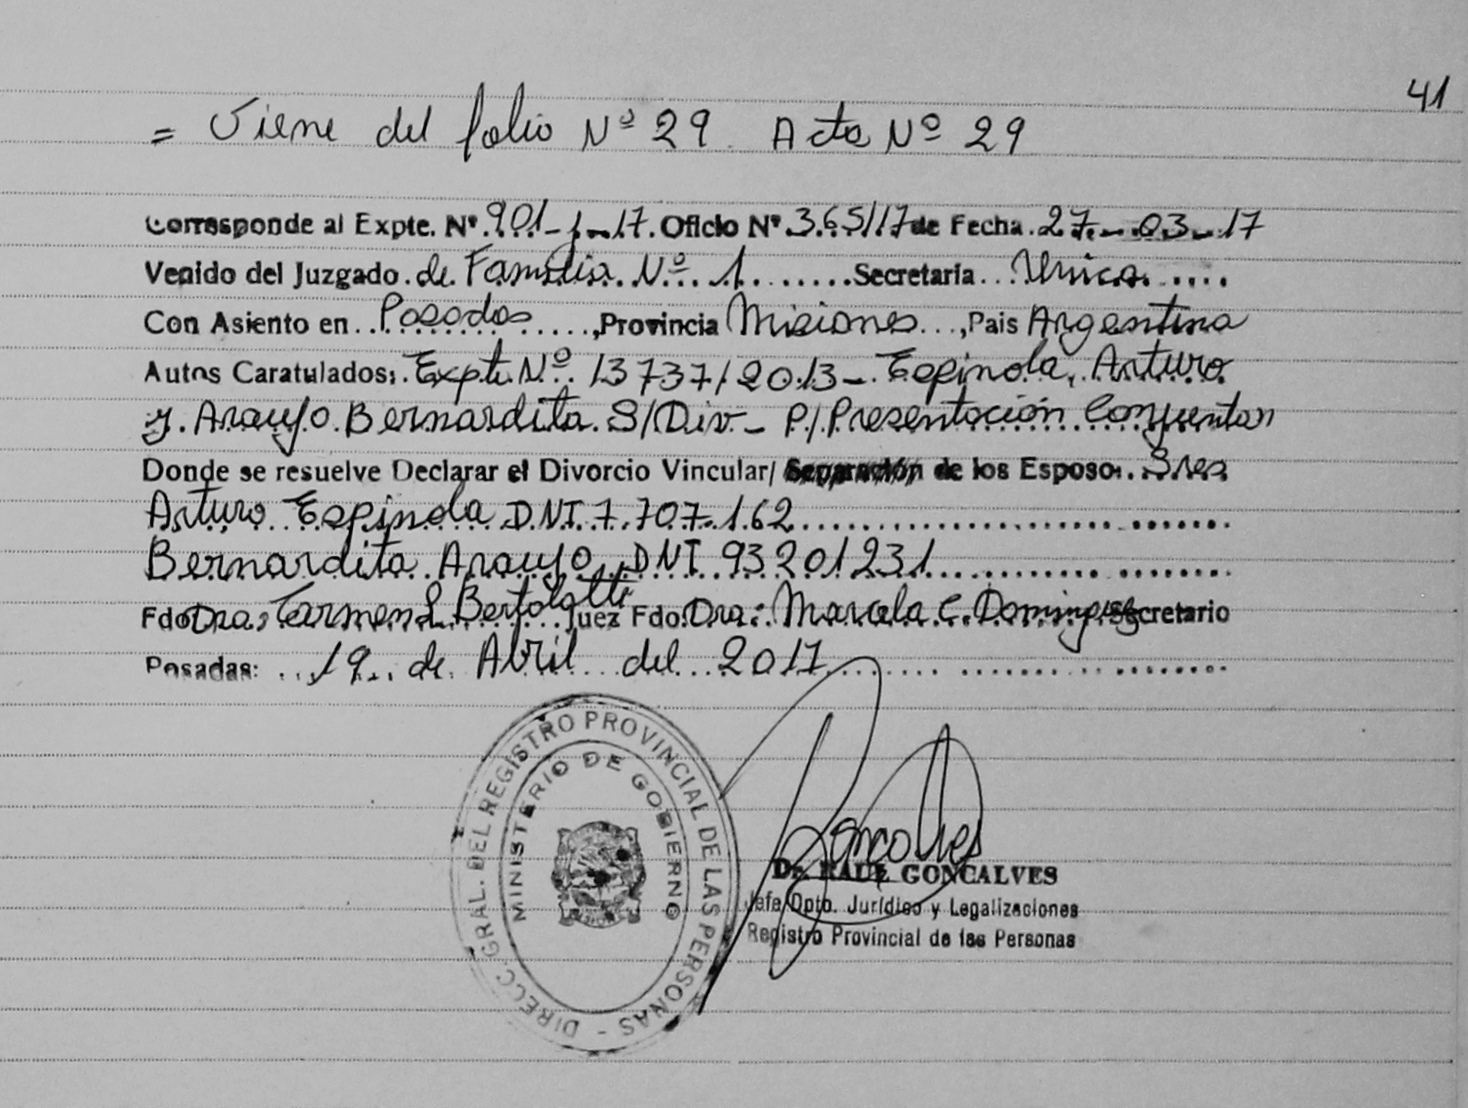 41
= Viene del folio Nº 29. Acta Nº 29
Corresponde al Expte. Nº 901-J-17. Oficio Nº 365/17 de Fecha 27-03-17
Venido del Juzgado de Familia Nº 1 Secretaria Unica
Con Asiento en Posadas, Provincia Misiones, Pais Argentina
Autos Caratulados: Expte Nº 13737/2013 - Espinola, Arturo
y Araujo Bernardita S/Div- P/Presentación Conjunta
Donde se resuelve Declarar el Divorcio Vincular/ Separación de los Esposos Sres
Arturo Espinola DNI 7.707.162
Bernardita Araujo DNI 93201231
Fdo Dra: Carmen L. Bertolotti Juez Fdo: Dra: Marcela C. Dominguez Secretario
Posadas: 19 de Abril del 2017
DIRECC. GRAL. DEL REGISTRO PROVINCIAL DE LAS PERSONAS -
MINISTERIO DE GOBIERNO
Goncalves
Dr. RAUL GONCALVES
Jefe Dpto. Jurídico y Legalizaciones
Registro Provincial de las Personas